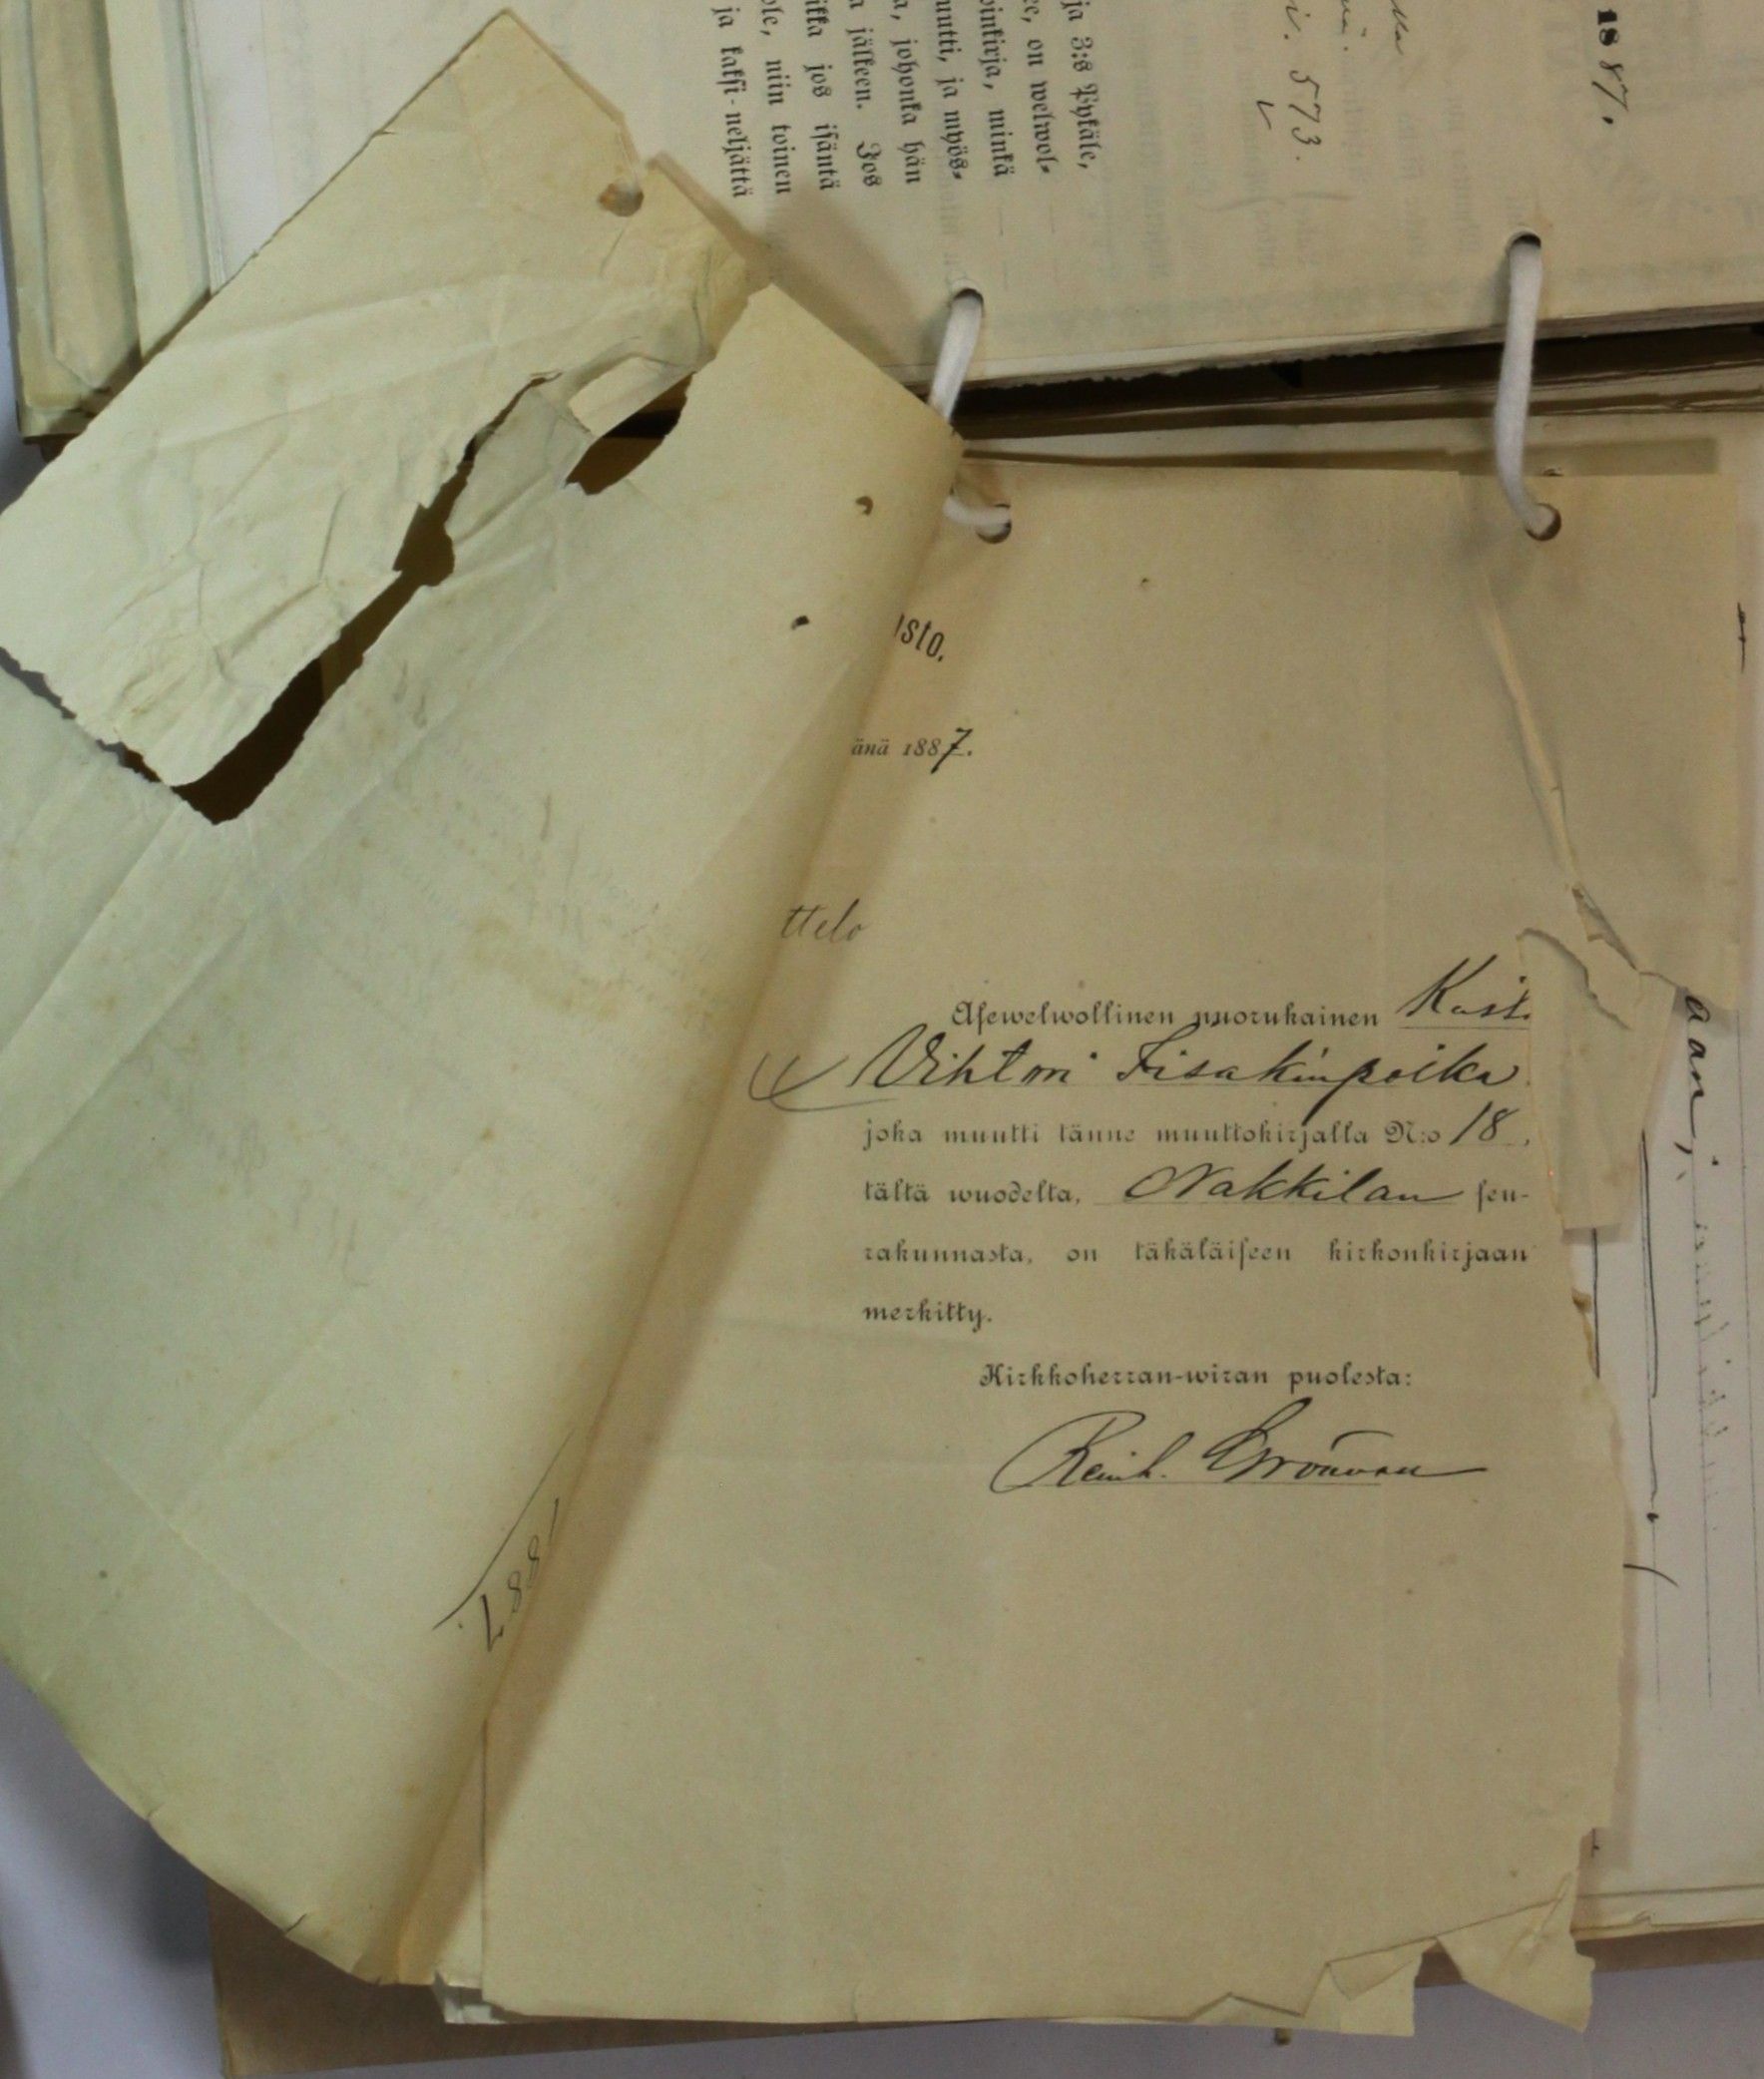 1887.
573.
ja 3:s Pykäle,
e, on welwol-
pinkirja, minkä
uutti, ja myös-
a, johonka hän
a jälkeen. Jos
ikka jos isäntä
ole, niin toinen
ja kaksi-neljättä
isto.
änä 1887.
ttelo
Asewelwollinen nuorukainen Kust.
Vihtori Iisakinpoika
joka muutti tänne muuttokirjalla N:o 18,
tältä wuodelta, Nakkilan seu-
rakunnasta, on täkäläiseen kirkonkirjaan
merkitty.
Kirkkoherran-wiran puolesta:
Reinh. Grönvall
1887.
aan,